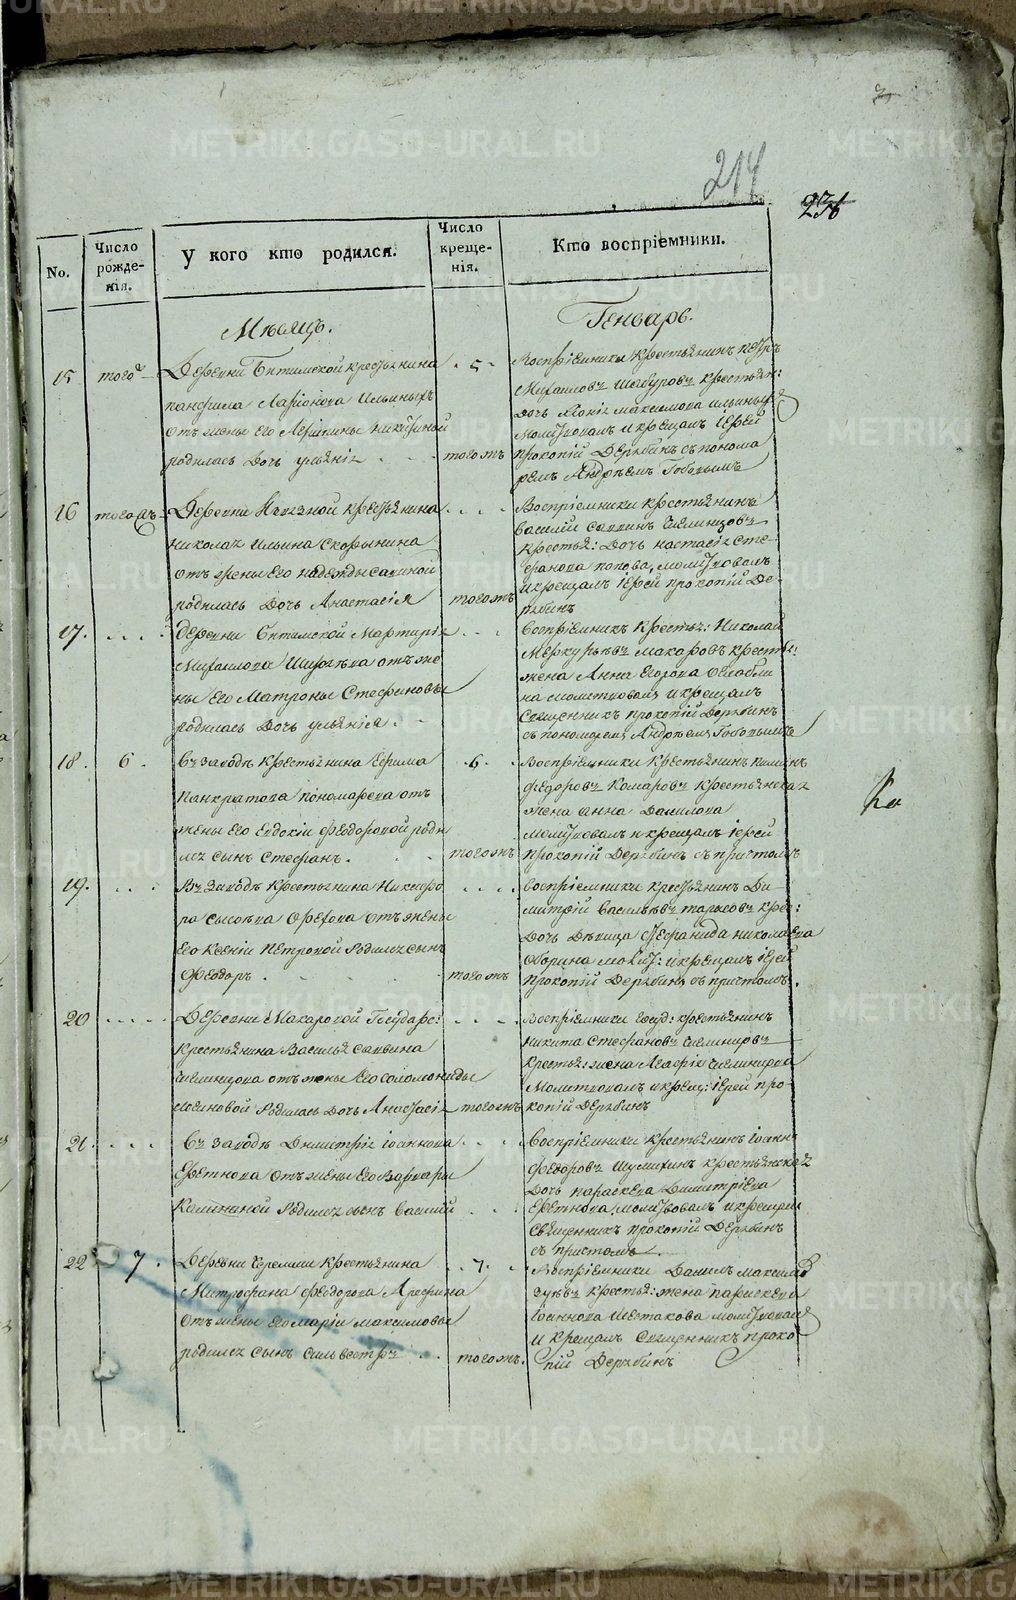 214
236
No.
Число рожде-нія.
У кого кто родился.
Число креще-нія.
Кто воспріемники.
Мѣсяцъ.
Генварь.
15
того
Деревни Бктимской крестьянина
Панфила Ларіонова Ильиныхъ
отъ жены его
родилась дочь Ульянія
5
тогожъ
Воспріемники крестьянинъ Петръ
Михаиловъ Шабуровъ крестьян:
дочь Максимова Ильиныхъ
молитвовалъ и крещалъ іерей
Прокопій Дерябинъ съ понома
ремъ Андреемъ
16
Деревни крестьянина
Николая Ильина Скорынина
отъ жены его Надежды Савиной
родилась дочь Анастасія
тогожъ
Воспріемники крестьянинъ
Василій Саввинъ Челинцовъ
крестья: дочь Настасія Сте
фанова Попова, молитвовалъ
и крещалъ іерей Прокопій Де-
рябинъ
17.
деревни Бктимской Мартирія
Михаилова отъ же
ны его Матроны Стефановы
родилась дочь Ульянія
воспріемникъ крестья: Николай
Меркурьевъ Макаровъ крестья:
жена Анна Егорова
на молитвовалъ и крещалъ
священникъ Прокопій Дерябинъ
съ пономаремъ Андреемъ
18.
6.
Въ заводѣ крестьянина Ефима
Панкратова Пономарева отъ
жены его Евдокіи Феодоровой роди
лся сынъ Стефанъ.
6.
тогожъ
Воспріемники крестьянинъ Пименъ
Федоровъ Комаровъ крестьянская
жена Анна Данилова
молитвовалъ и крещалъ іерей
Прокопій Дерябинъ съ причтомъ
19.
Въ заводѣ крестьянина Никифо
ра Сысоева Орехова отъ жены
его Ксеніи Петровой родился сынъ
Феодоръ.
тогожъ
воспріемники крестьянинъ Ди-
митрій Васильевъ Тарасовъ крес:
дочь девица Стефанида Николаева
молит: и крещалъ іерей
Прокопій Дерябинъ съ причтомъ.
20
Деревни Макаровой Государс:
крестьянина Василья Саввина
Челинцова отъ жены его Соломониды
Логиновой родилась дочь Анастасія
тогожъ
Воспріемники Госуд: крестьянинъ
Никита Стефановъ Челинцовъ
крестья: жена Агафія Челинцова
Молитвовалъ и крещ: іерей Про-
копій Дерябинъ
21.
Въ заводѣ Димитрія Іоаннова
Еретнова отъ жены его Варвары
Калининой родился сынъ Василій
Воспріемники крестьянинъ Іоаннъ
Федоровъ Шумихинъ крестьянская
дочь Параскева Димитріева
Еретнова, молитвовалъ и крещалъ
священникъ Прокопій Дерябинъ
съ причтомъ.
22
7.
Деревни крестьянина
Митрофана Феодорова Арефина
отъ жены его Маріи Максимовы
родился сынъ Сильвестръ
7.
тогожъ.
Воспріемники Данилъ Максимов
Зуевъ крестья: жена Параскева
Іоаннова Шестакова молитвовалъ
и крещалъ священникъ Проко
пій Дерябинъ